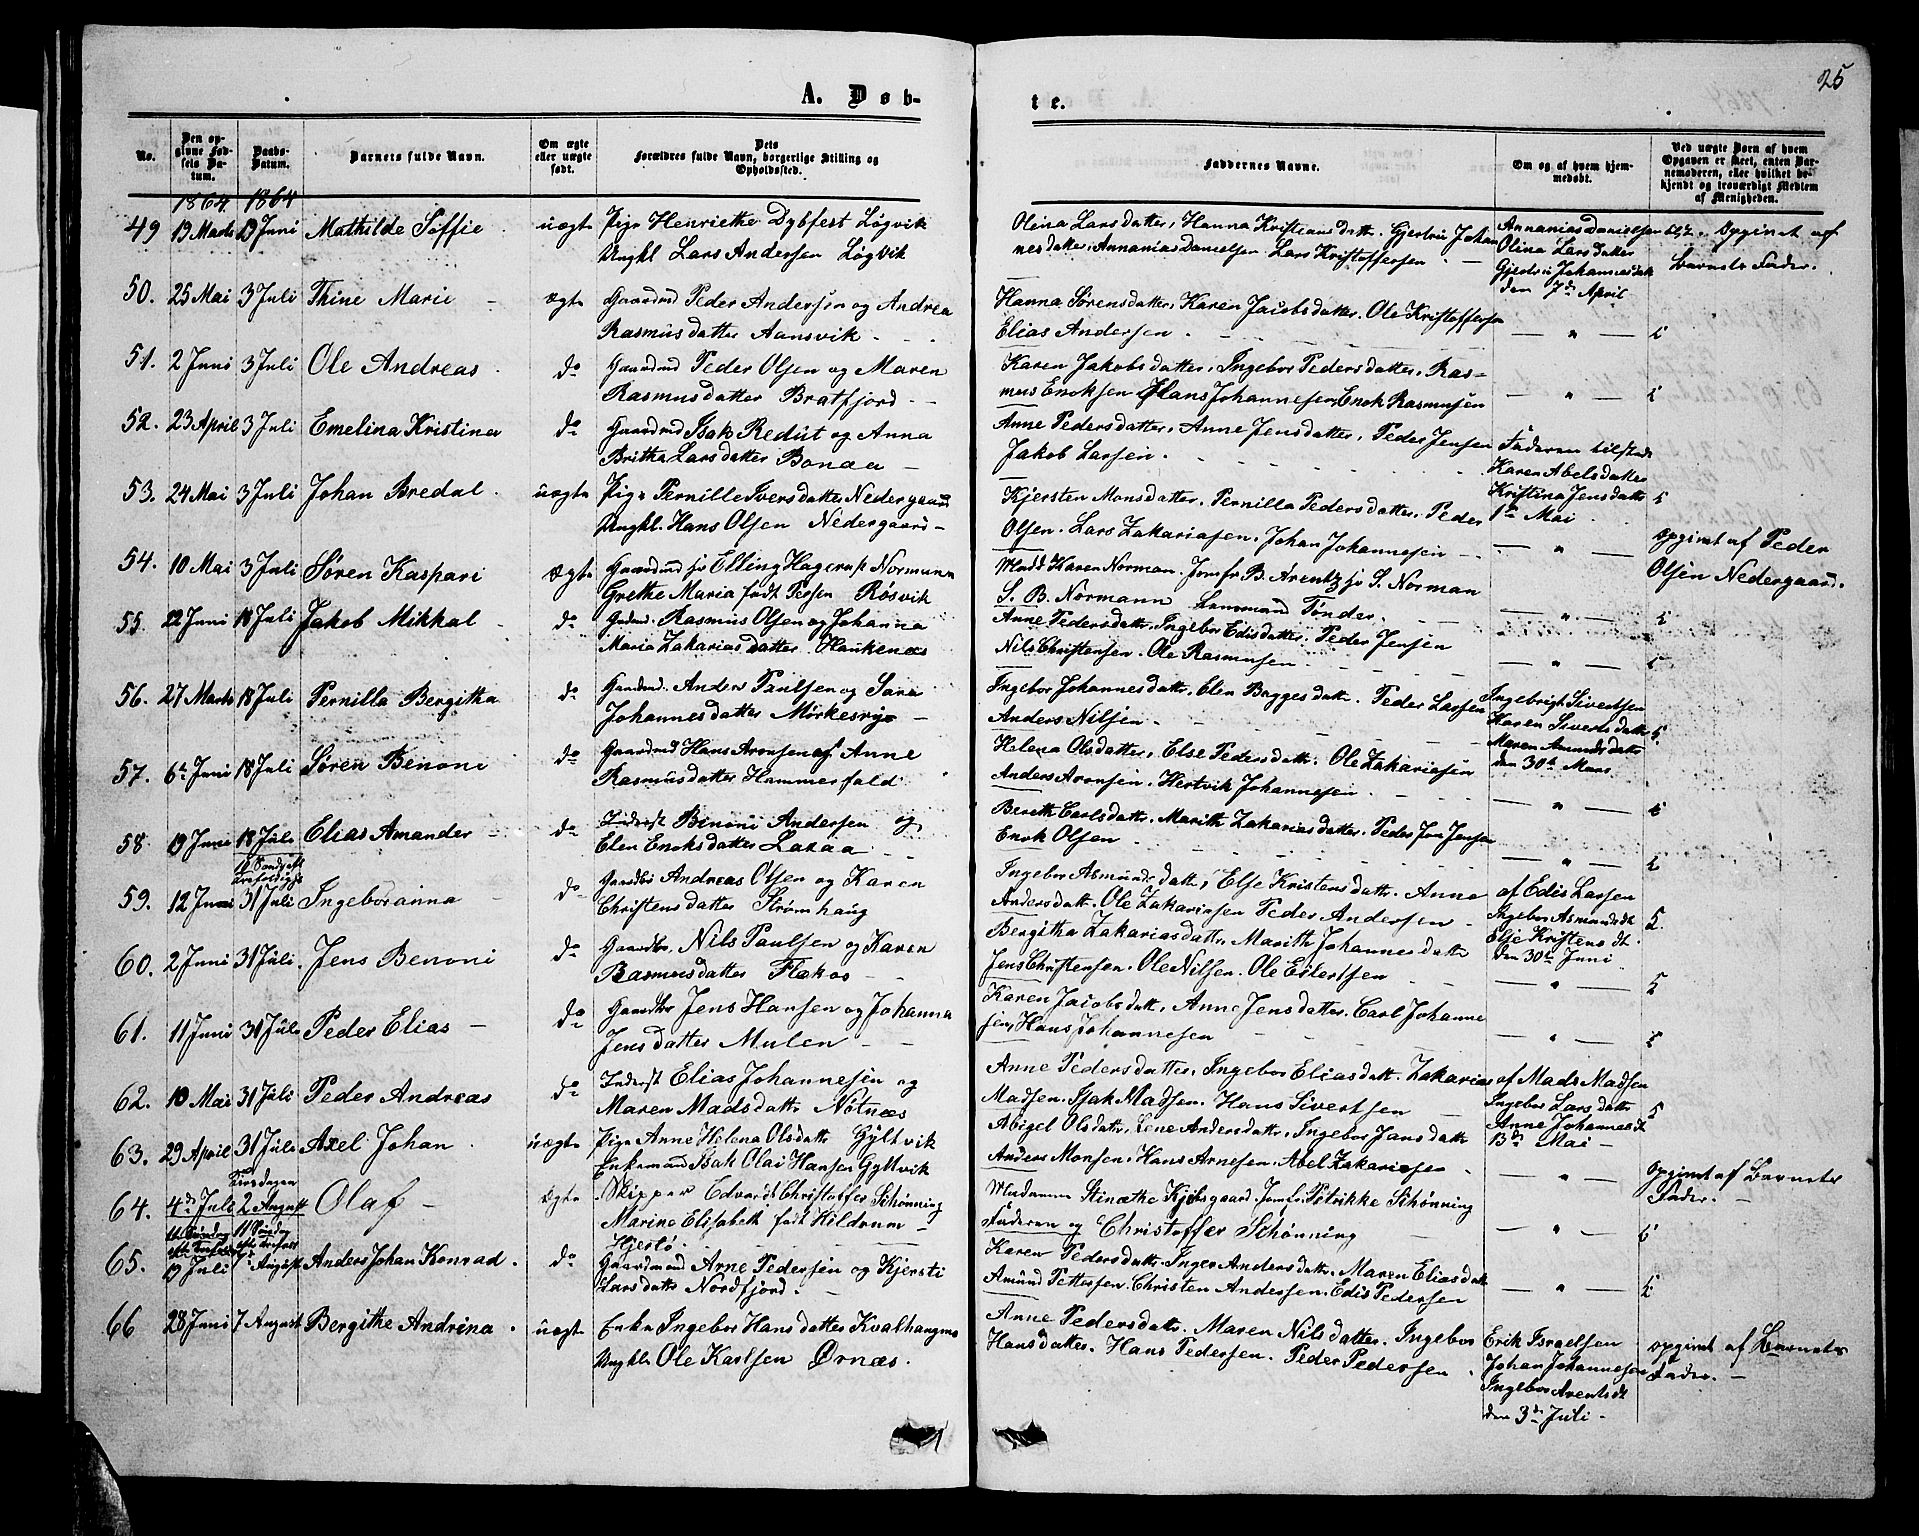 25
A. Døb-
te.
No.
Den opgivne Fødsels Datum.
Daabs-Datum.
Barnets fulde Navn.
Om ægte eller uægte født.
Dets Forældres fulde Navn, borgerlige Stilling og Opholdssted.
Faddernes Navne.
Om og af hvem hjemmedøbt.
Ved uægte Børn af hvem Opgaven er skeet, enten Barnemoderen, eller hvilket bekjendt og troværdigt Medlem af Menigheden.
1864 1864
49 19 Marts 19 Juni Mathilde Søffie uægte Pige Henriette Dybfest Løgvik
Ungkl Lars Andersen Løgvik
Olina Larsdatter, Hanna Kristiansdatt. Gjertru Johan
nesdatter, Annanias Danielsen Lars Kristoffersen
Annanias Danielsen
Olina Larsdatter
Gjertru Johannesdatt
den 7de April
Opgivet af
Barnets Fader.
50. 25 Mai 3 Juli Thine Marie ægte Gaardmd Peder Andersen og Andrea
Rasmusdatter Aansvik
Hanna Sørensdatter, Karen Jacobsdatter. Ole Kristoffersen
Elias Andersen
51. 2 Juni 3 Juli Ole Andreas do Gaardmd Peder Olsen og Maren
Rasmusdatter Bratfjord
Karen Jakobsdatter, Ingebor Pedersdatter, Ras-
mus Enoksen Hans Johannesen, Enok Rasmusen
52. 23 April 3 Juli Emelina Kristina do Gaardmd Isak Redut og Anna
Britha Larsdatter Bonaa
Anne Pedersdatter, Anne Jensdatter, Peder Jensen
Jakob Larsen
Faderen tilstede
Karen Abelsdatter
Kristina Jensdatter
1de Mai
53. 24 Mai 3 Juli Johan Bredal uægte Pige Pernille Iversdatter Nedergaard
Ungkl. Hans Olsen Nedergaard
Kjersten Monsdatter, Pernilla Pedersdatter, Peder
Olsen, Lars Zakariasen, Johan Johannesen
opgivet af Peder
Olsen Nedergaard.
54. 10 Mai 3 Juli Søren Kaspari ægte Gaardmd Elling Hagerup Normann
Grethe Maria født Jessen Røsvik
Madd Karen Norman. Jomfr B. Arentz S. Norman
S. B. Normann Lensmand Tønder
55. 22 Juni 18 Juli Jakob Mikkal do Gdmd. Rasmus Olsen og Johanna
Maria Zakariasdatter Haukenæs
Anne Pedersdatter, Ingebor Edisdatter. Peder Jensen
Nils Christensen. Ole Rasmusen
56. 27 Marts 18 Juli Pernilla Bergitha do Gaardmd. Anders Paulsen og Sara
Johannesdatter Mørkesvig
Ingebor Johannesdatter, Elen Baggesdatter. Peder Larsen
Anders Nilsen
Ingebrigt Sivertsen
Karen Sivertsdatter
Maren Amundsdatter
den 30te Mars
57. 6te Juni 18 Juli Søren Benoni do Gaardmd Hans Aronsen og Anne
Rasmusdatter Hammerfald
Helena Olsdatter, Else Pedersdatter. Ole Zakariasen
Anders Aronsen. Hertvik Johannesen
58. 19 Juni 18 Juli Elias Amander do Inderst Benoni Andersen og
Elen Enoksdatter Lakaa
Bereth Carlsdatter, Marith Zakariasdatter. Peder Jensen
Enok Olsen
59. 12 Juni 31 Juli Ingeboranna do Gaardbr Andreas Olsen og Karen
Christensdatter Strømhaug
Ingebor Asmundsdatter, Else Kristensdatter. Anne
Andersdatt. Ole Zakariasen Peder Andersen
af Edis Larsen
Ingebor Asmundsdt
Else Kristensdt.
den 30te Juni
60. 2 Juni 31 Juli Jens Benoni do Gaardbr. Nils Paulsen og Karen
Rasmusdatter Flakos
Bergitha Zakariasdatter, Marith Johannesdatter
Jens Christensen. Ole Nilsen. Ole Eilertsen
61. 11 Juni 31 Juli Peder Elias do Gaardbr Jens Hansen og Johanna
Jensdatter Mulen
Karen Jacobsdatt, Anne Jensdatter. Carl Johanne
sen, Hans Johannesen
62. 10 Mai 31 Juli Peder Andreas do Inderst Elias Johannesen og
Maren Madsdatter Notnæs
Anne Pedersdatter, Ingebor Eliasdatt. Zakarias
Madsen. Isak Madsen. Hans Sivertsen
af Mads Madsen
Ingebor Larsdatter
Anne Johannesdt
13de Mai
63. 29 April 31 Juli Axel Johan uægte Pige Anne Helena Olsdatt Gyltvik
Enkemand Isak Olai Hansen Gyltvik
Abigel Olsdatter, Lene Andersdatter, Ingebor Jansdatt
Anders Monsen. Hans Arnesen. Abel Zakariasen
opgivet af Barnets
Fader.
64. 4de Juli Tirsdagen 2 August Olaf ægte Skipper Edvardt Christoffer Schønning
Marine Elisabeth født Hildrum
Hjertø
Madammen Stinethe Kjelsgaard. Jomfr Petrikke Schønning
Faderen og Christoffer Schønning
65. 19 Juli 7 August Anders Johan Konrad do Gaardmand Arne Pedersen og Kjersti
Larsdatter Nordfjord
Karen Pedersdatt, Inger Andersdatter. Maren Eliasdatt
Amund Pettersen. Christen Andersen. Edis Pedersen
66 28 Juni 7 August Bergithe Andrina uægte Enke Ingebor Hansdatter Kvalhaugmo
Ungkl. Ole Karlsen Ørnæs.
Anne Pedersdatter. Maren Nilsdatter. Ingebor
Hansdatter. Hans Pedersen. Peder Pedersen
Erik Israelsen
Johan Johannesen
Ingebor Arentsdt
den 3de Juli
opgivet af Barnets
Fader.